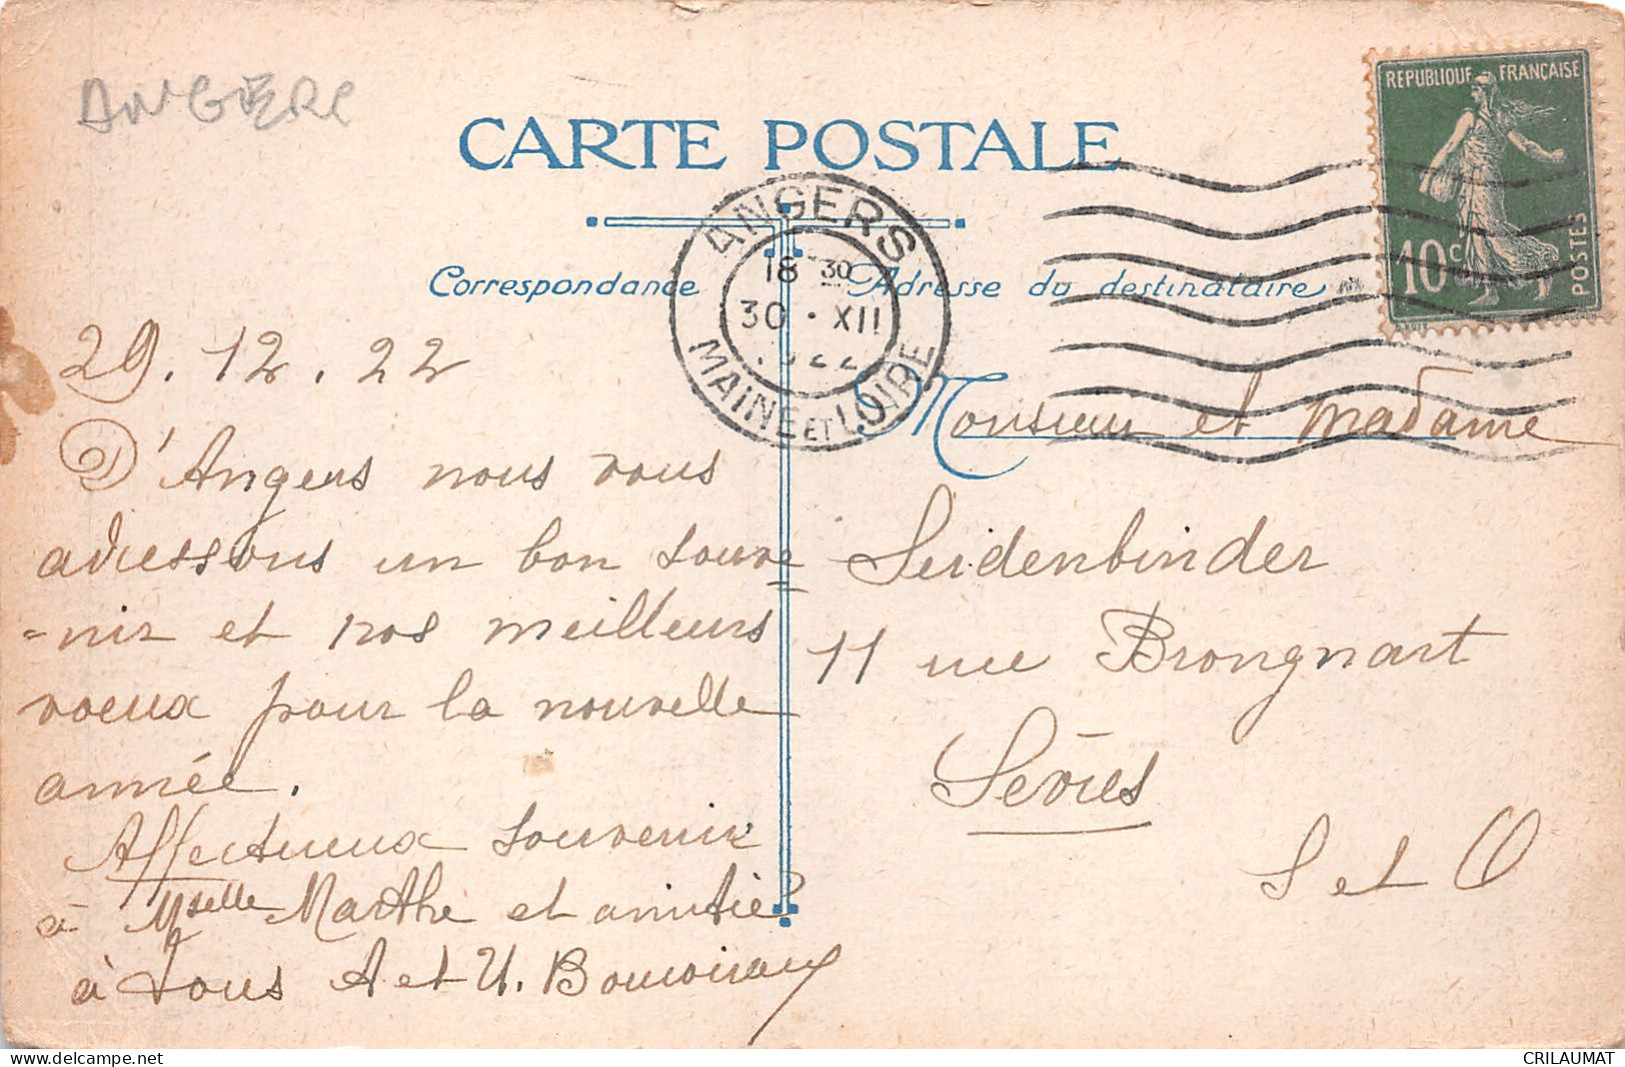 ANGERS
CARTE POSTALE
REPUBLIQUE FRANÇAISE
10c
POSTES
ANGERS
18 30
30 · XII
1922
MAINE ET LOIRE
Correspondance
Adresse du destinataire
29.12.22
D'Angers nous vous
adressons un bon souve
=nir et nos meilleurs
voeux pour la nouvelle
année.
Affectueux souvenir
à Mselle Marthe et amitié
à tous A et U.
Monsieur et Madame
Seidenbinder
11 rue Brongnart
Sèvres
S et O
www.delcampe.net
CRILAUMAT